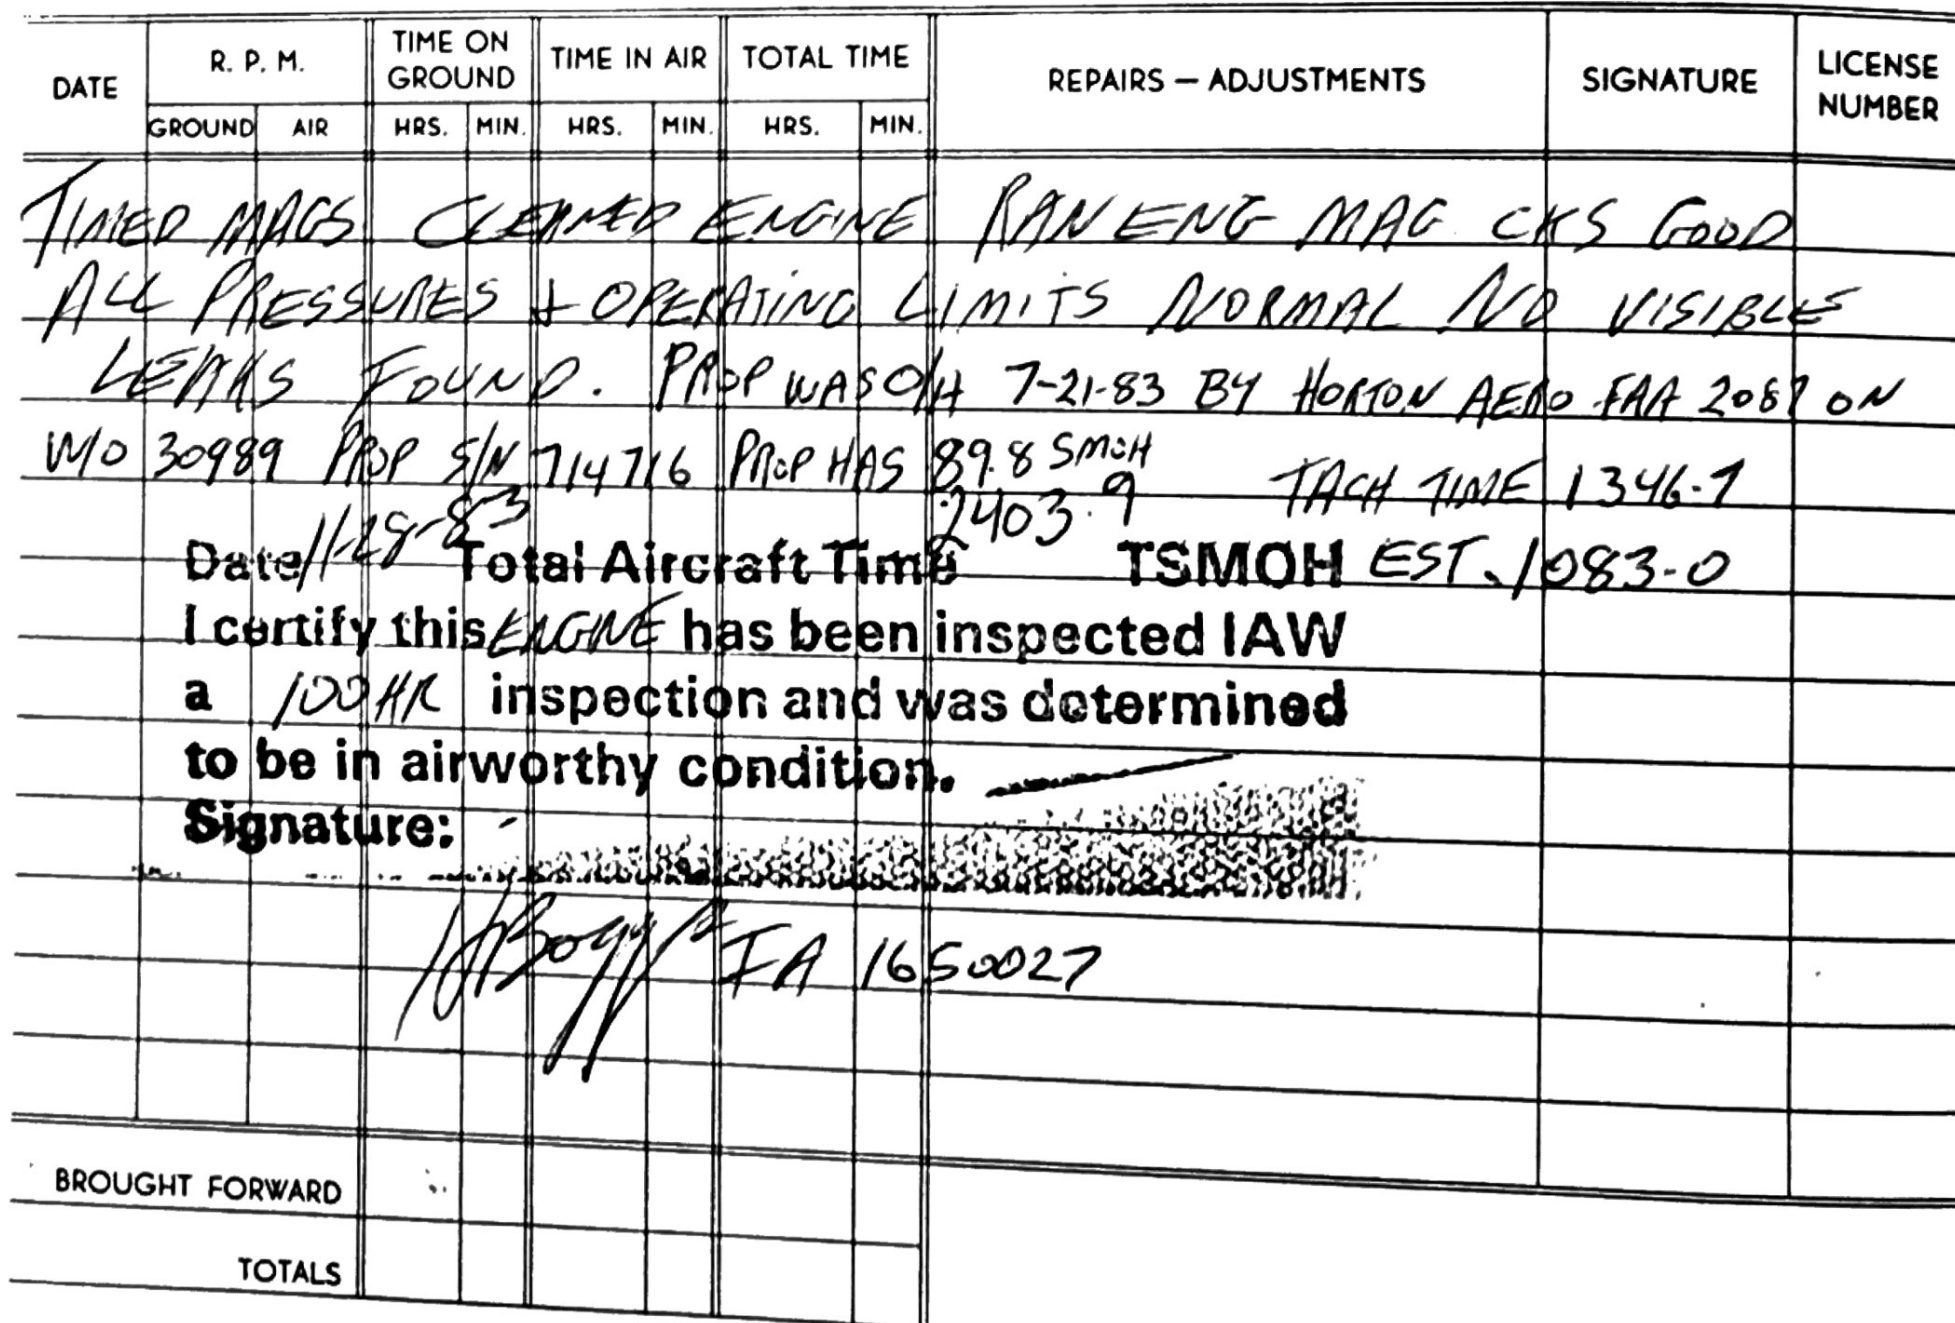 DATE R. P. M. TIME ON GROUND TIME IN AIR TOTAL TIME REPAIRS — ADJUSTMENTS SIGNATURE LICENSE NUMBER
GROUND AIR HRS. MIN. HRS. MIN. HRS. MIN.
TIMED MAGS CLEANED ENGINE RAN ENG MAG CKS GOOD
ALL PRESSURES + OPERATING LIMITS NORMAL NO VISIBLE
LEAKS FOUND. PROP WAS O/H 7-21-83 BY HORTON AERO FAA 2087 ON
W/O 30989 PROP S/N 714716 PROP HAS 89.8 SMOH TACH TIME 1346.7
Date 11-28-83 Total Aircraft Time 2403.9 TSMOH EST. 1083.0
I certify this ENGINE has been inspected IAW
a 100 HR inspection and was determined
to be in airworthy condition.
Signature:
IA 1650027
BROUGHT FORWARD
TOTALS